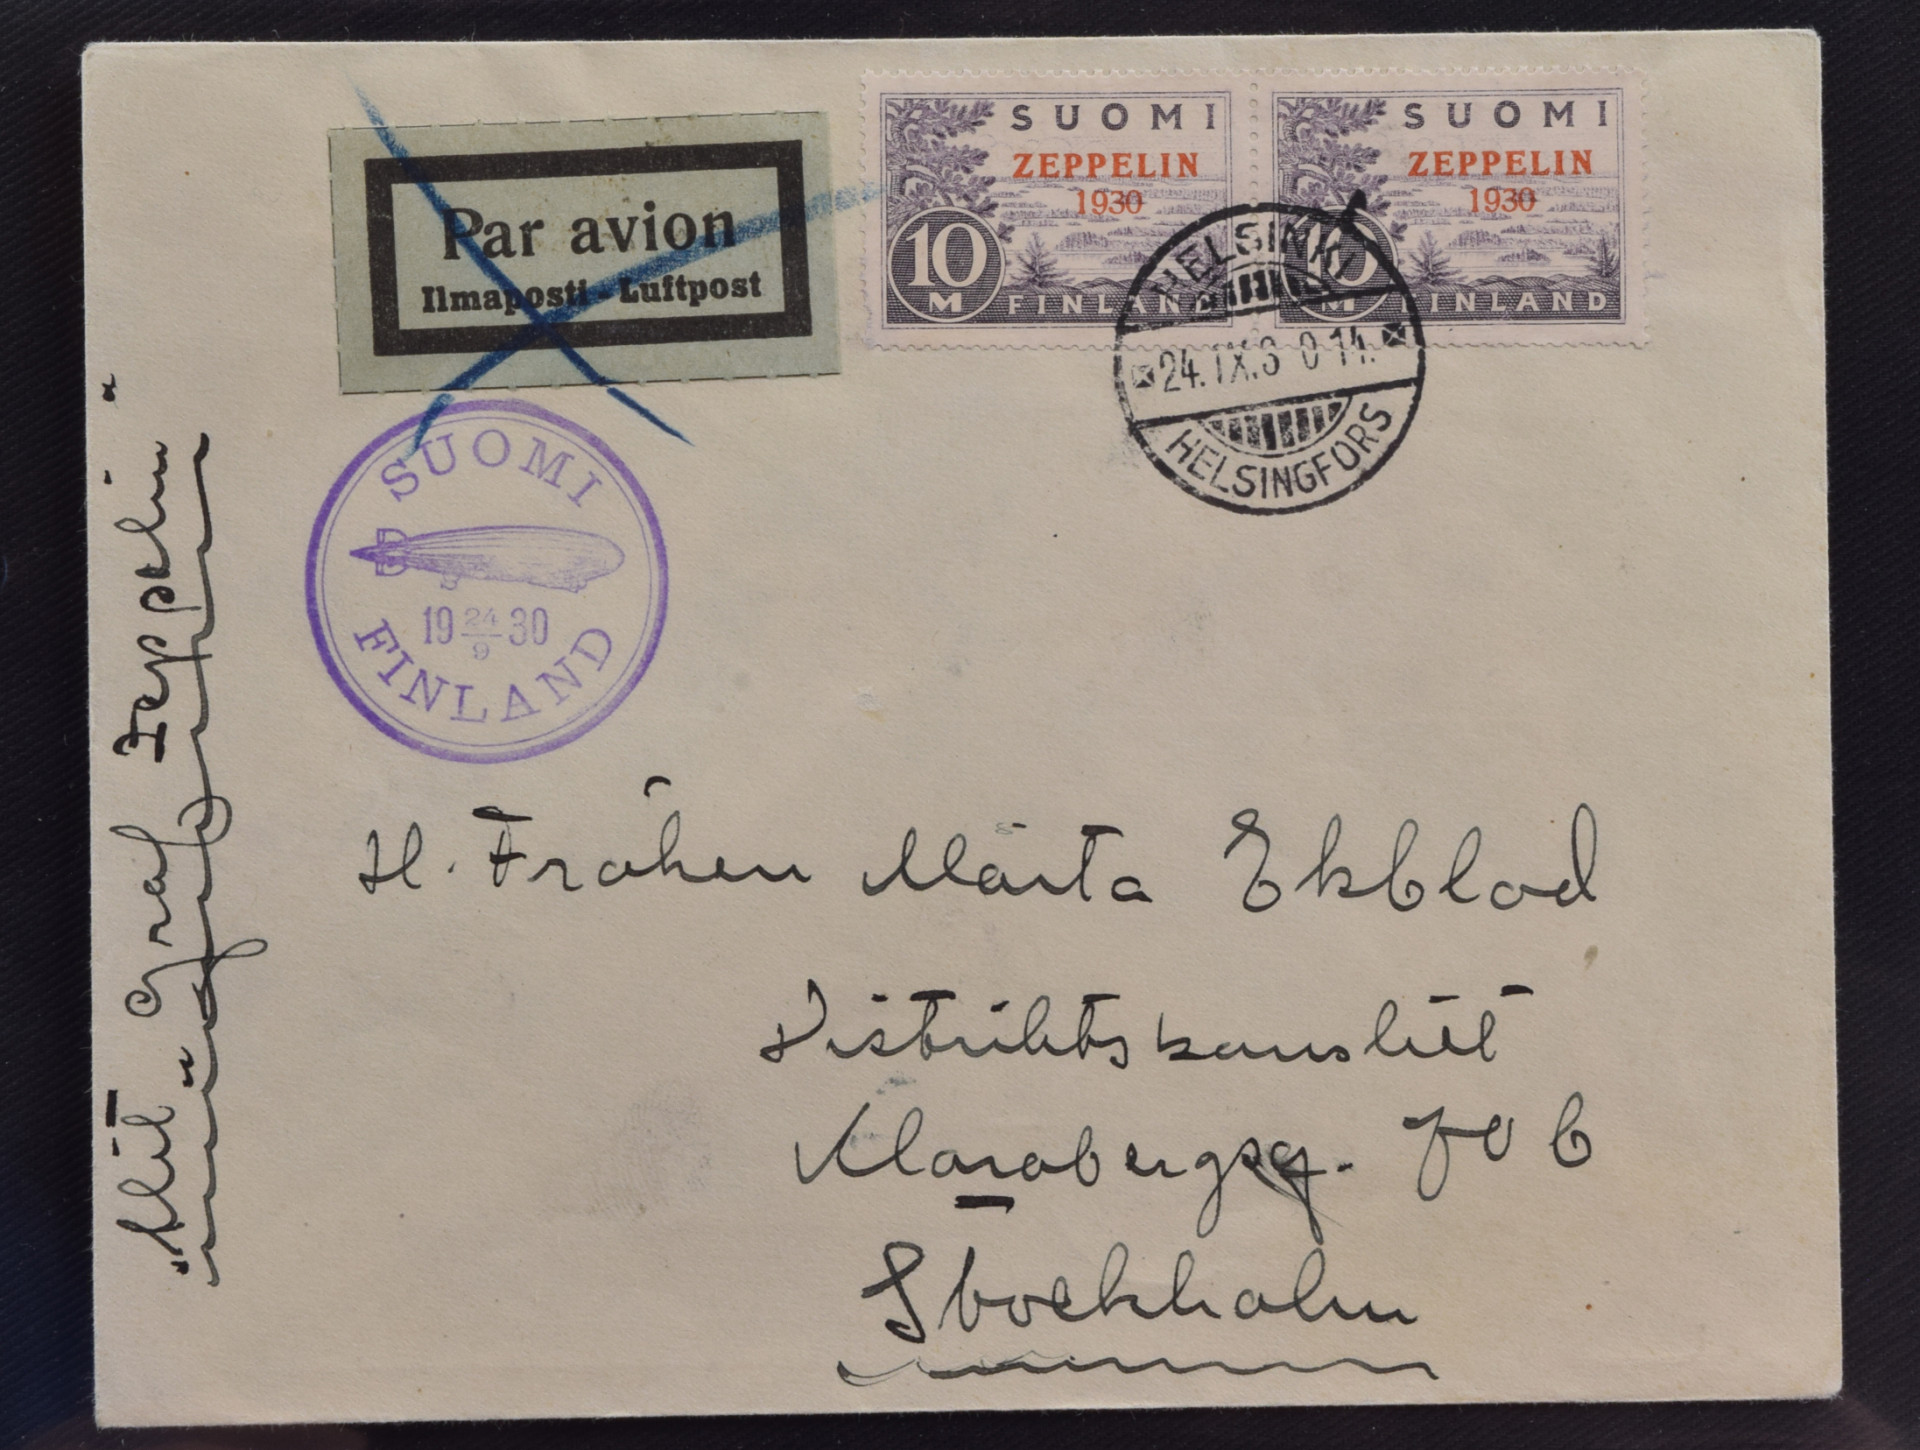 Par avion
Ilmaposti - Luftpost
SUOMI
ZEPPELIN
1930
10
M
FINLAND
SUOMI
ZEPPELIN
1930
10
M
FINLAND
HELSINKI
24.IX.3 0 14.
HELSINGFORS
SUOMI
D
19 24/9 30
FINLAND
"Mit "Graf Zeppelin"
H. Fröken Märta Ekblad
Distriktskansliet
Klarabergsg.
Stockholm